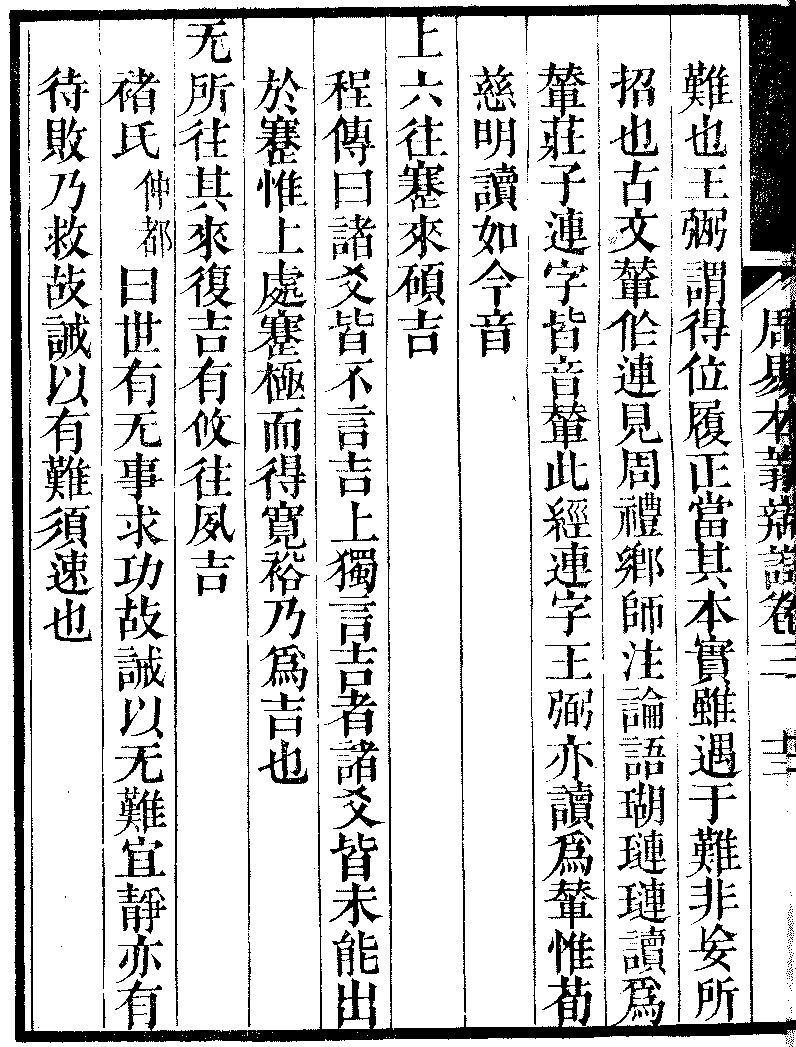 周易本義辯證卷三
難也王弼謂得位履正當其本實雖遇于難非妄所
招也古文輦作連見周禮鄉師注論語瑚璉璉讀爲
輦莊子連字皆音輦此經連字王弼亦讀爲輦惟荀
慈明讀如今音
上六往蹇來碩吉
程傳曰諸爻皆不言吉上獨言吉者諸爻皆未能出
於蹇惟上處蹇極而得寬裕乃爲吉也
无所往其來復吉有攸往夙吉
褚氏仲都曰世有无事求功故誡以无難宜靜亦有
待敗乃救故誡以有難須速也